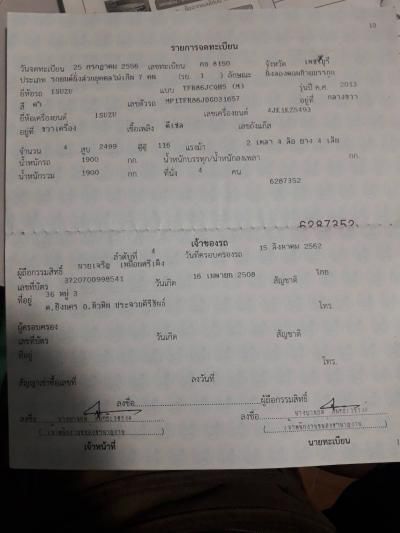 10
รายการจดทะเบียน
วันจดทะเบียน 25 กรกฎาคม 2556 เลขทะเบียน 6150 จังหวัด เพชรบุรี
ประเภท รถยนต์นั่งส่วนบุคคลไม่เกิน 7 คน (รย. 1) ลักษณะ
ยี่ห้อรถ ISUZU แบบ TFR86JCQH5 (M) รุ่นปี ค.ศ. 2013
สี ดำ เลขตัวรถ MP1TFR86JDG031657 อยู่ที่ กลางขวา
ยี่ห้อเครื่องยนต์ ISUZU เลขเครื่องยนต์
อยู่ที่ ขวาเครื่อง เชื้อเพลิง ดีเซล เลขถังแก๊ส
จำนวน 4 สูบ 2499 ซีซี 116 แรงม้า 2 เพลา 4 ล้อ ยาง 4 เส้น
น้ำหนักรถ 1900 กก. น้ำหนักบรรทุก/น้ำหนักลงเพลา กก.
น้ำหนักรวม 1900 กก. ที่นั่ง 4 คน
6287352
6287352
เจ้าของรถ
ลำดับที่ 4 วันที่ครอบครองรถ 15 สิงหาคม 2562
ผู้ถือกรรมสิทธิ์ นายเจริญ
เลขที่บัตร 3720700998541 วันเกิด 16 เมษายน 2508 สัญชาติ ไทย
ที่อยู่ 36 หมู่ 3
ต.บึงนคร อ.หัวหิน ประจวบคีรีขันธ์ โทร.
ผู้ครอบครอง
เลขที่บัตร วันเกิด สัญชาติ
ที่อยู่
โทร.
สัญญาเช่าซื้อเลขที่ ลงวันที่
ลงชื่อ ผู้ถือกรรมสิทธิ์
ลงชื่อ ลงชื่อ
เจ้าหน้าที่ นายทะเบียน